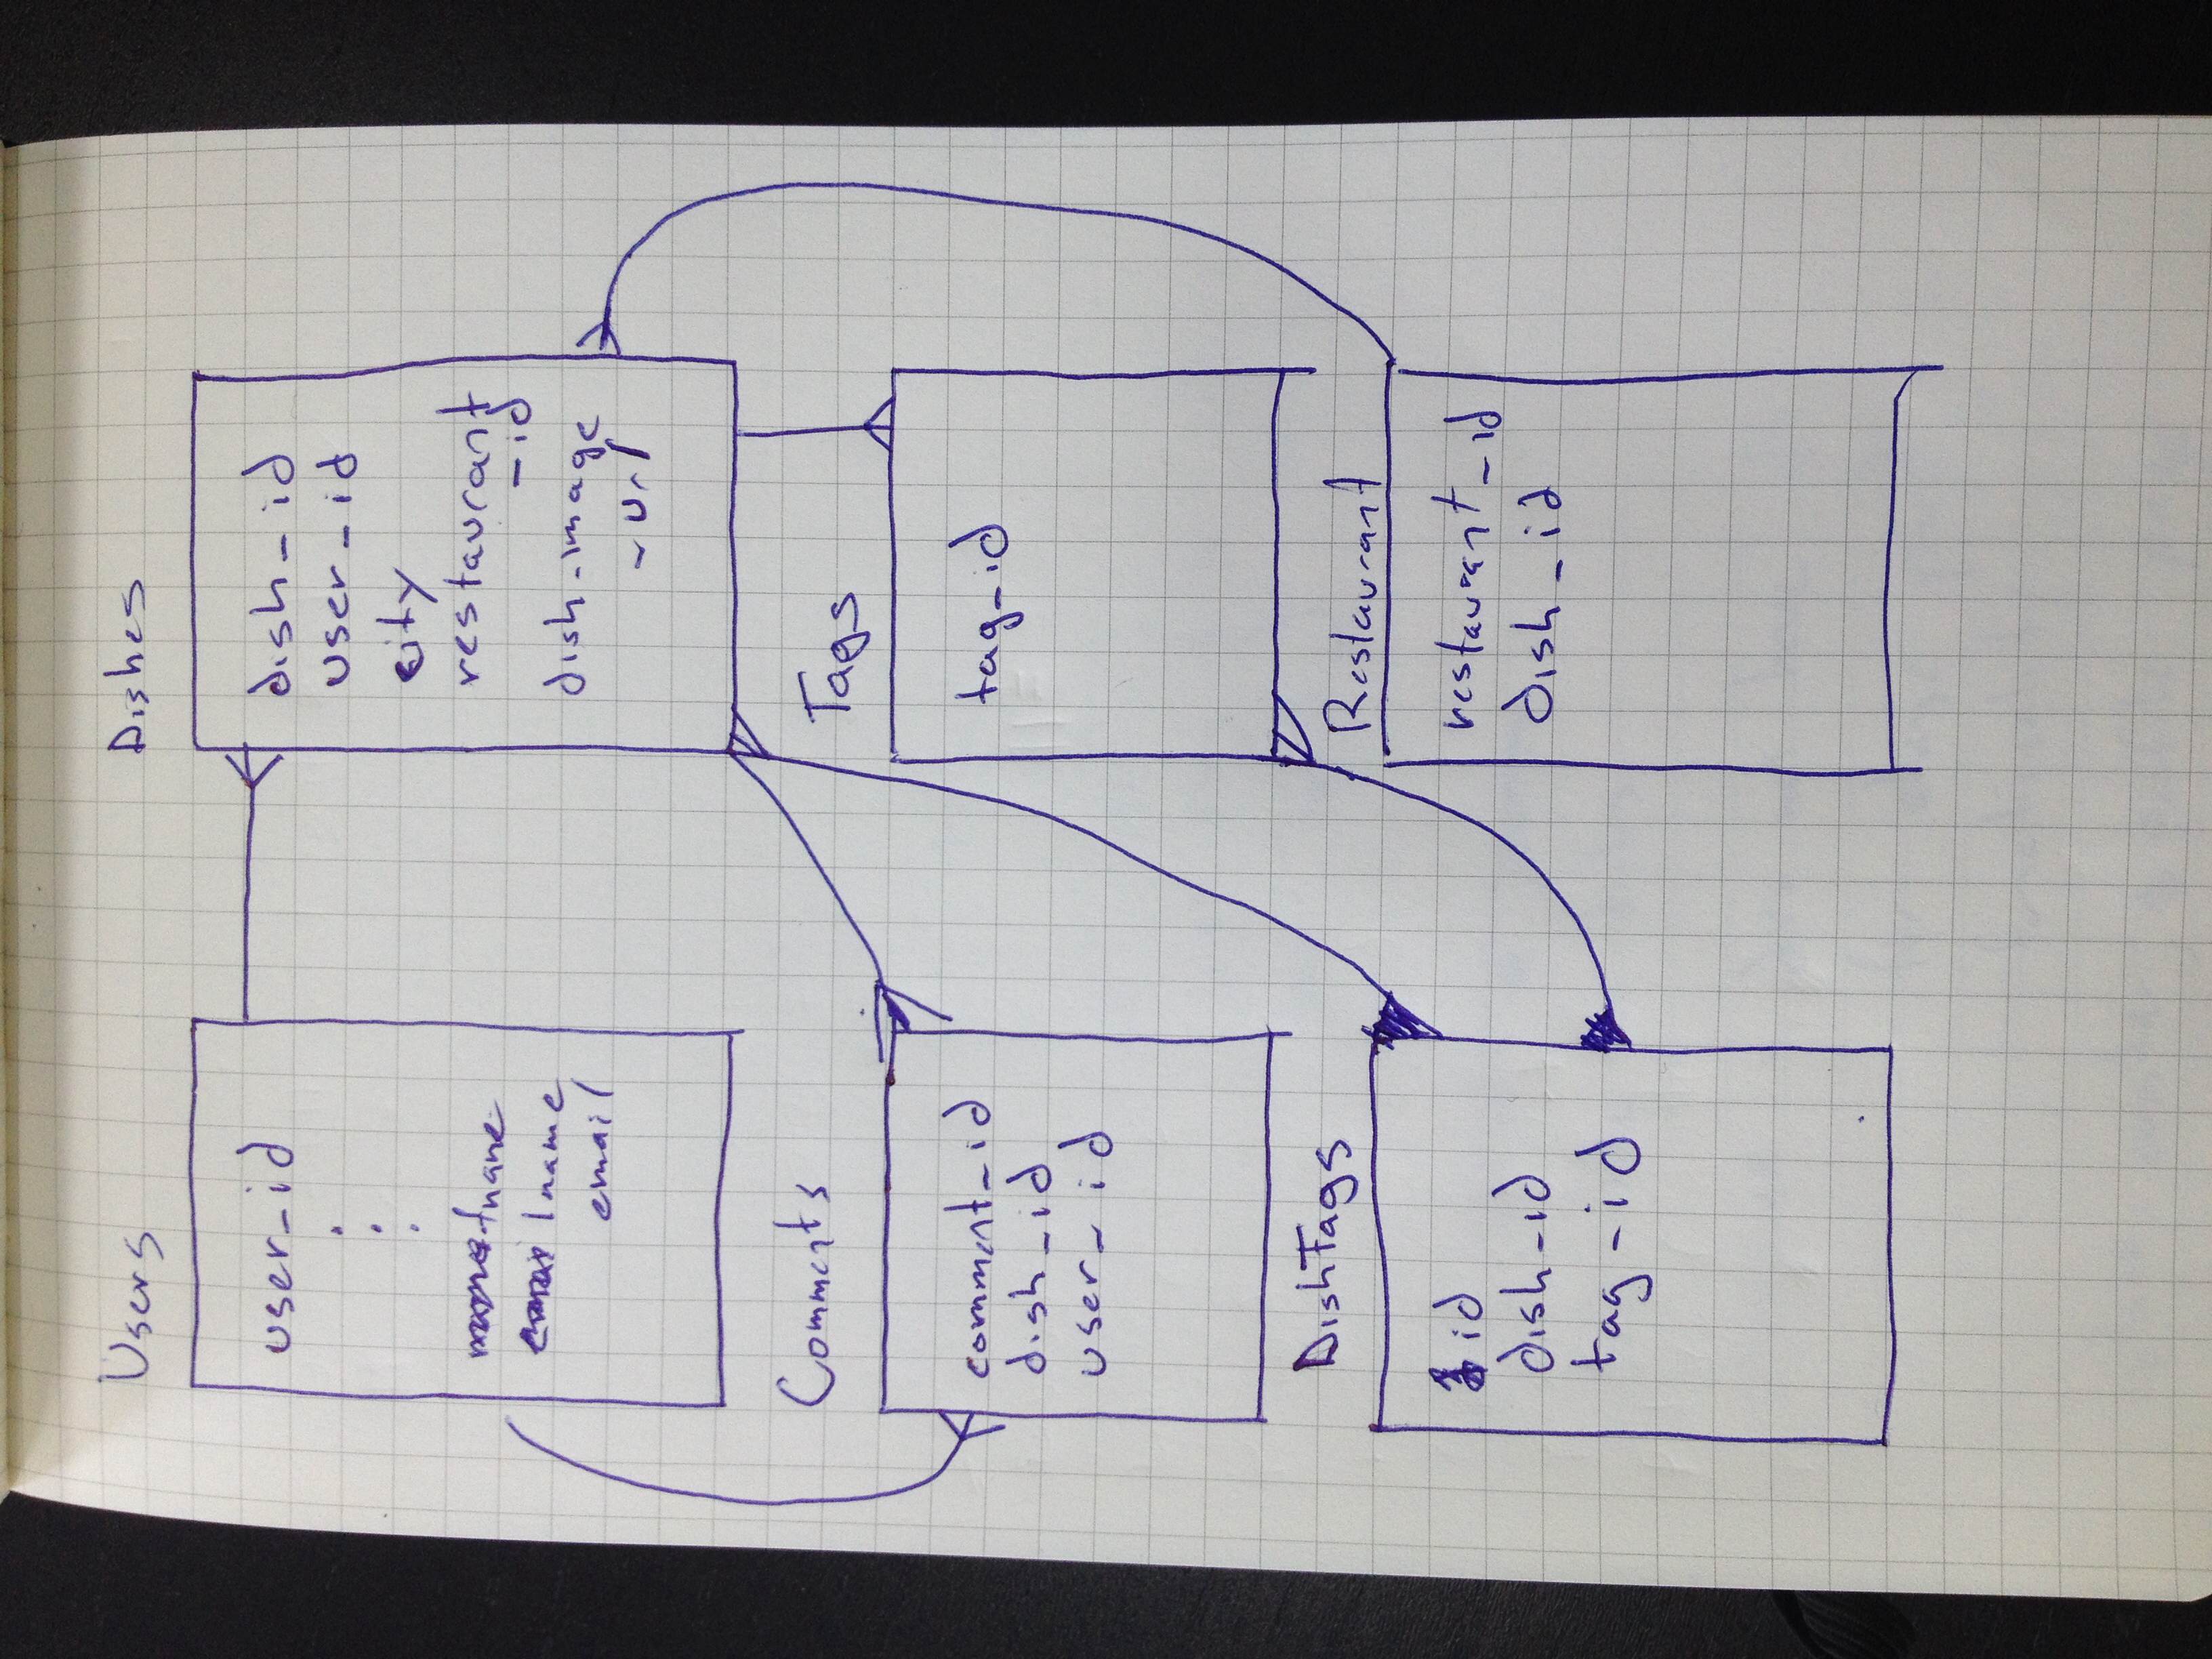 Users
user_id
fname
lname
email
Dishes
dish_id
user_id
city
restaurant
_id
dish_image
_url
Comments
comment_id
dish_id
user_id
Tags
tag_id
DishTags
id
dish_id
tag_id
Restaurant
restaurant_id
dish_id